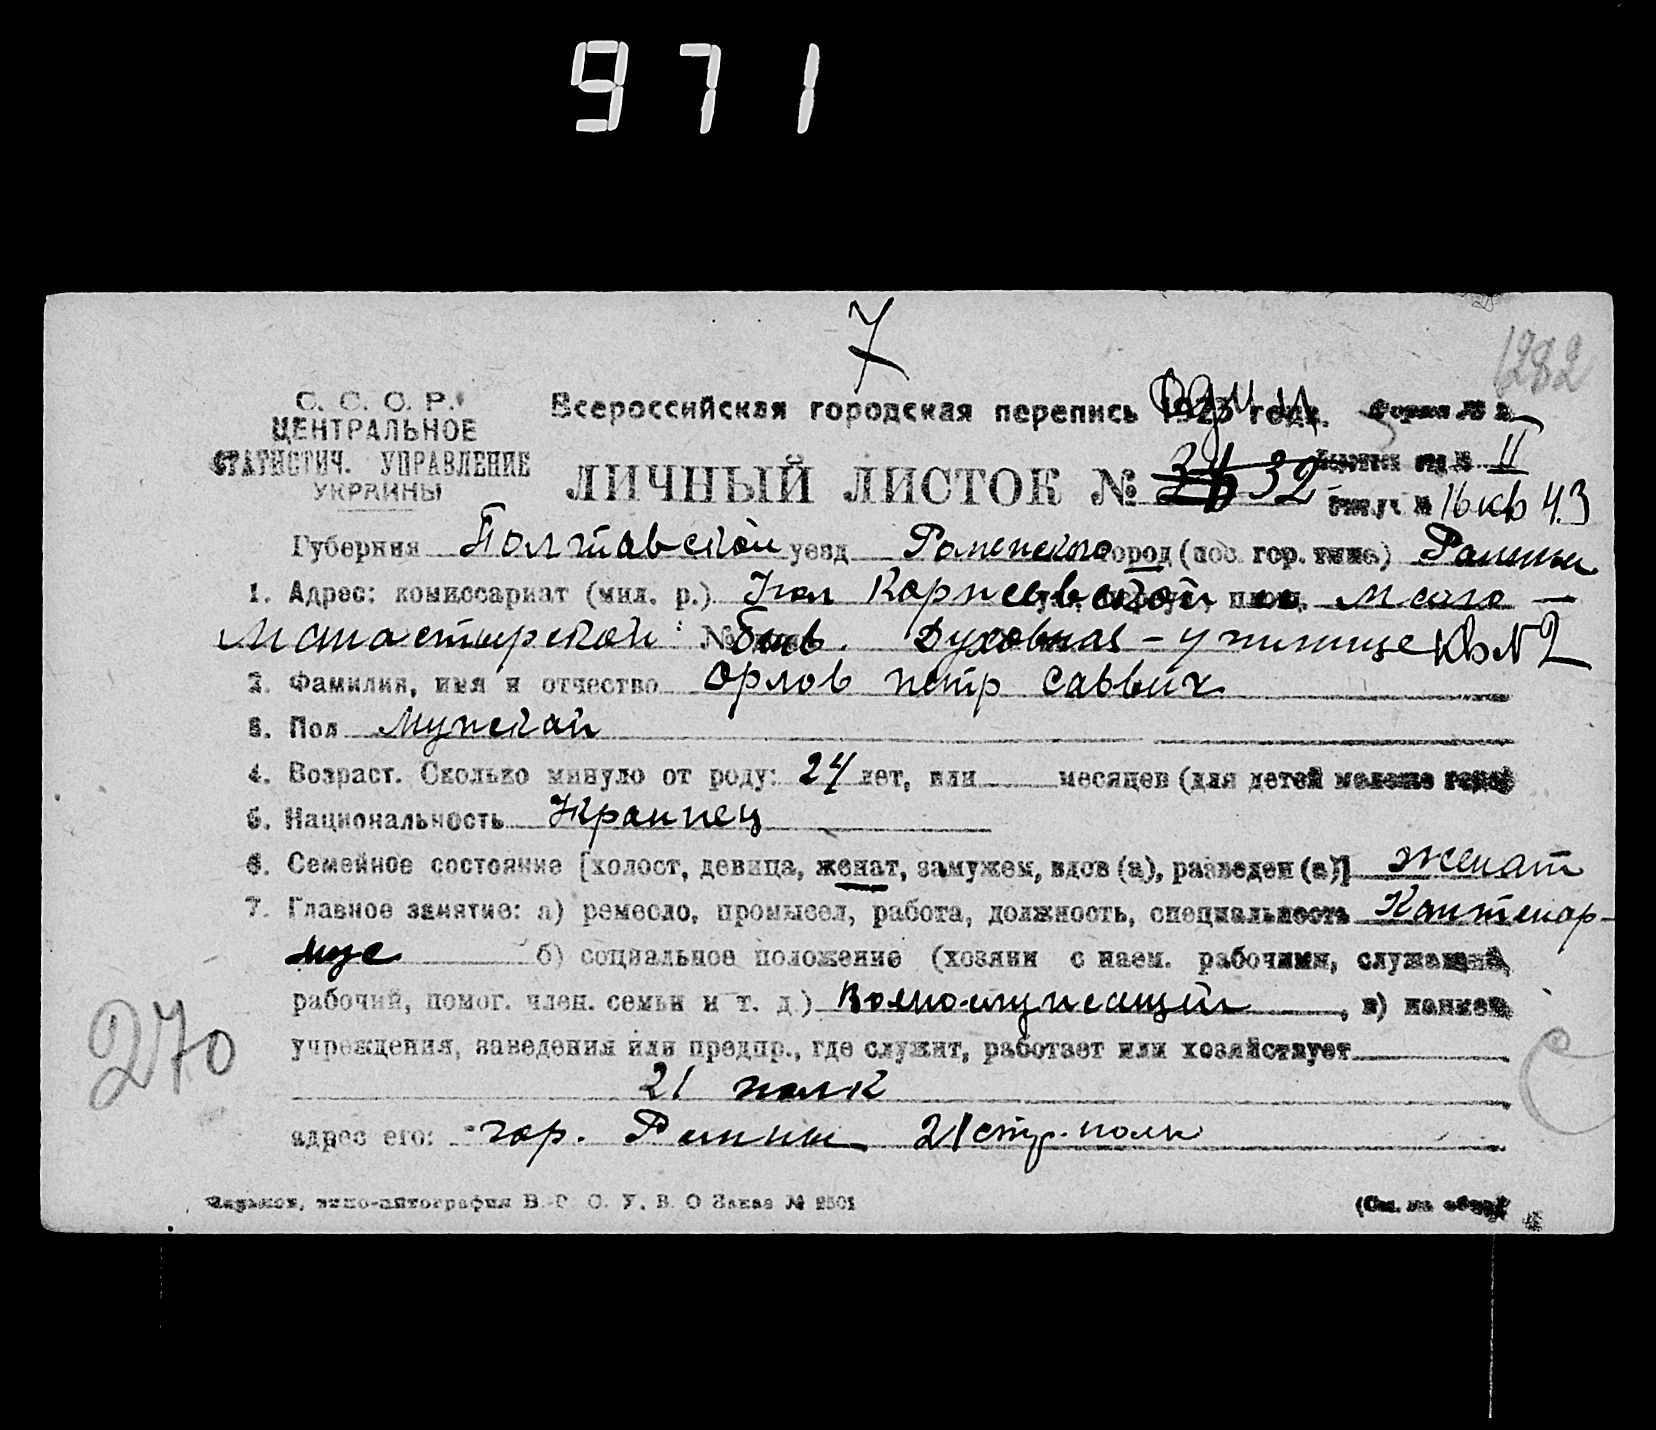 971
7
1282
С. С. С. Р.
ЦЕНТРАЛЬНОЕ
СТАТИСТИЧ. УПРАВЛЕНИЕ
УКРАИНЫ
Всероссийская городская перепись 1923 года. Форма № 2
ЛИЧНЫЙ ЛИСТОК № 32
II
16 кв 43
Губерния Полтавской уезд Роменского город (пос. гор. типа) Ромны
1. Адрес: комиссариат (мил. р.) площ.
Монастырской № Духовная - училище кв N 2
2. Фамилия, имя и отчество Орлов петр Саввич
3. Пол Мужской
4. Возраст. Сколько минуло от роду: 24 лет, или месяцев (для детей моложе года)
5. Национальность Украинец
6. Семейное состояние [холост, девица, женат, замужем, вдов (а), разведен (а)] женат
7. Главное занятие: а) ремесло, промысел, работа, должность, специальность Каптенар-
мус б) социальное положение (хозяин с наем. рабочими, служащий,
рабочий, помог. член. семьи и т. д.) Военно-служащий, в) наимен.
учреждения, заведения или предпр., где служит, работает или хозяйствует
21 полк
адрес его: гор. Ромны 21 стр. полк
270
С
Харьков, типо-литография В. С. О. У. В. О Заказ № 2501
(См. на обор.)